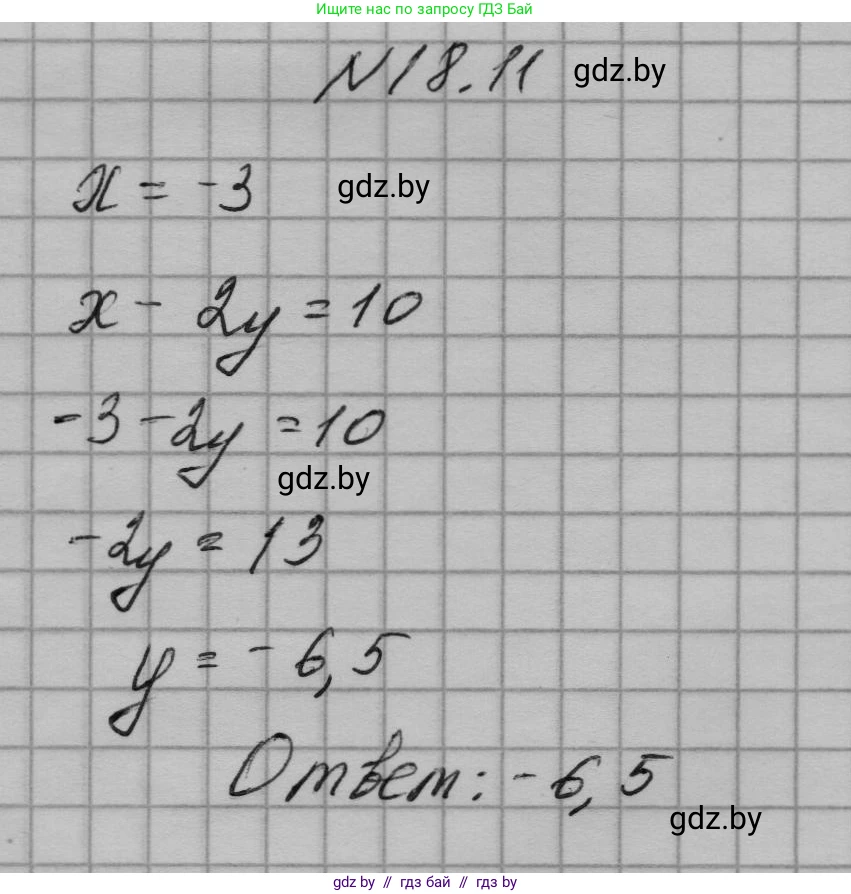 Ищите нас по запросу ГДЗ Бай
N18.11 gdz.by
x = -3 gdz.by
x - 2y = 10
-3 - 2y = 10
gdz.by
-2y = 13
y = - 6,5
Ответ: - 6,5
gdz.by
gdz by // гдз бай // gdz by